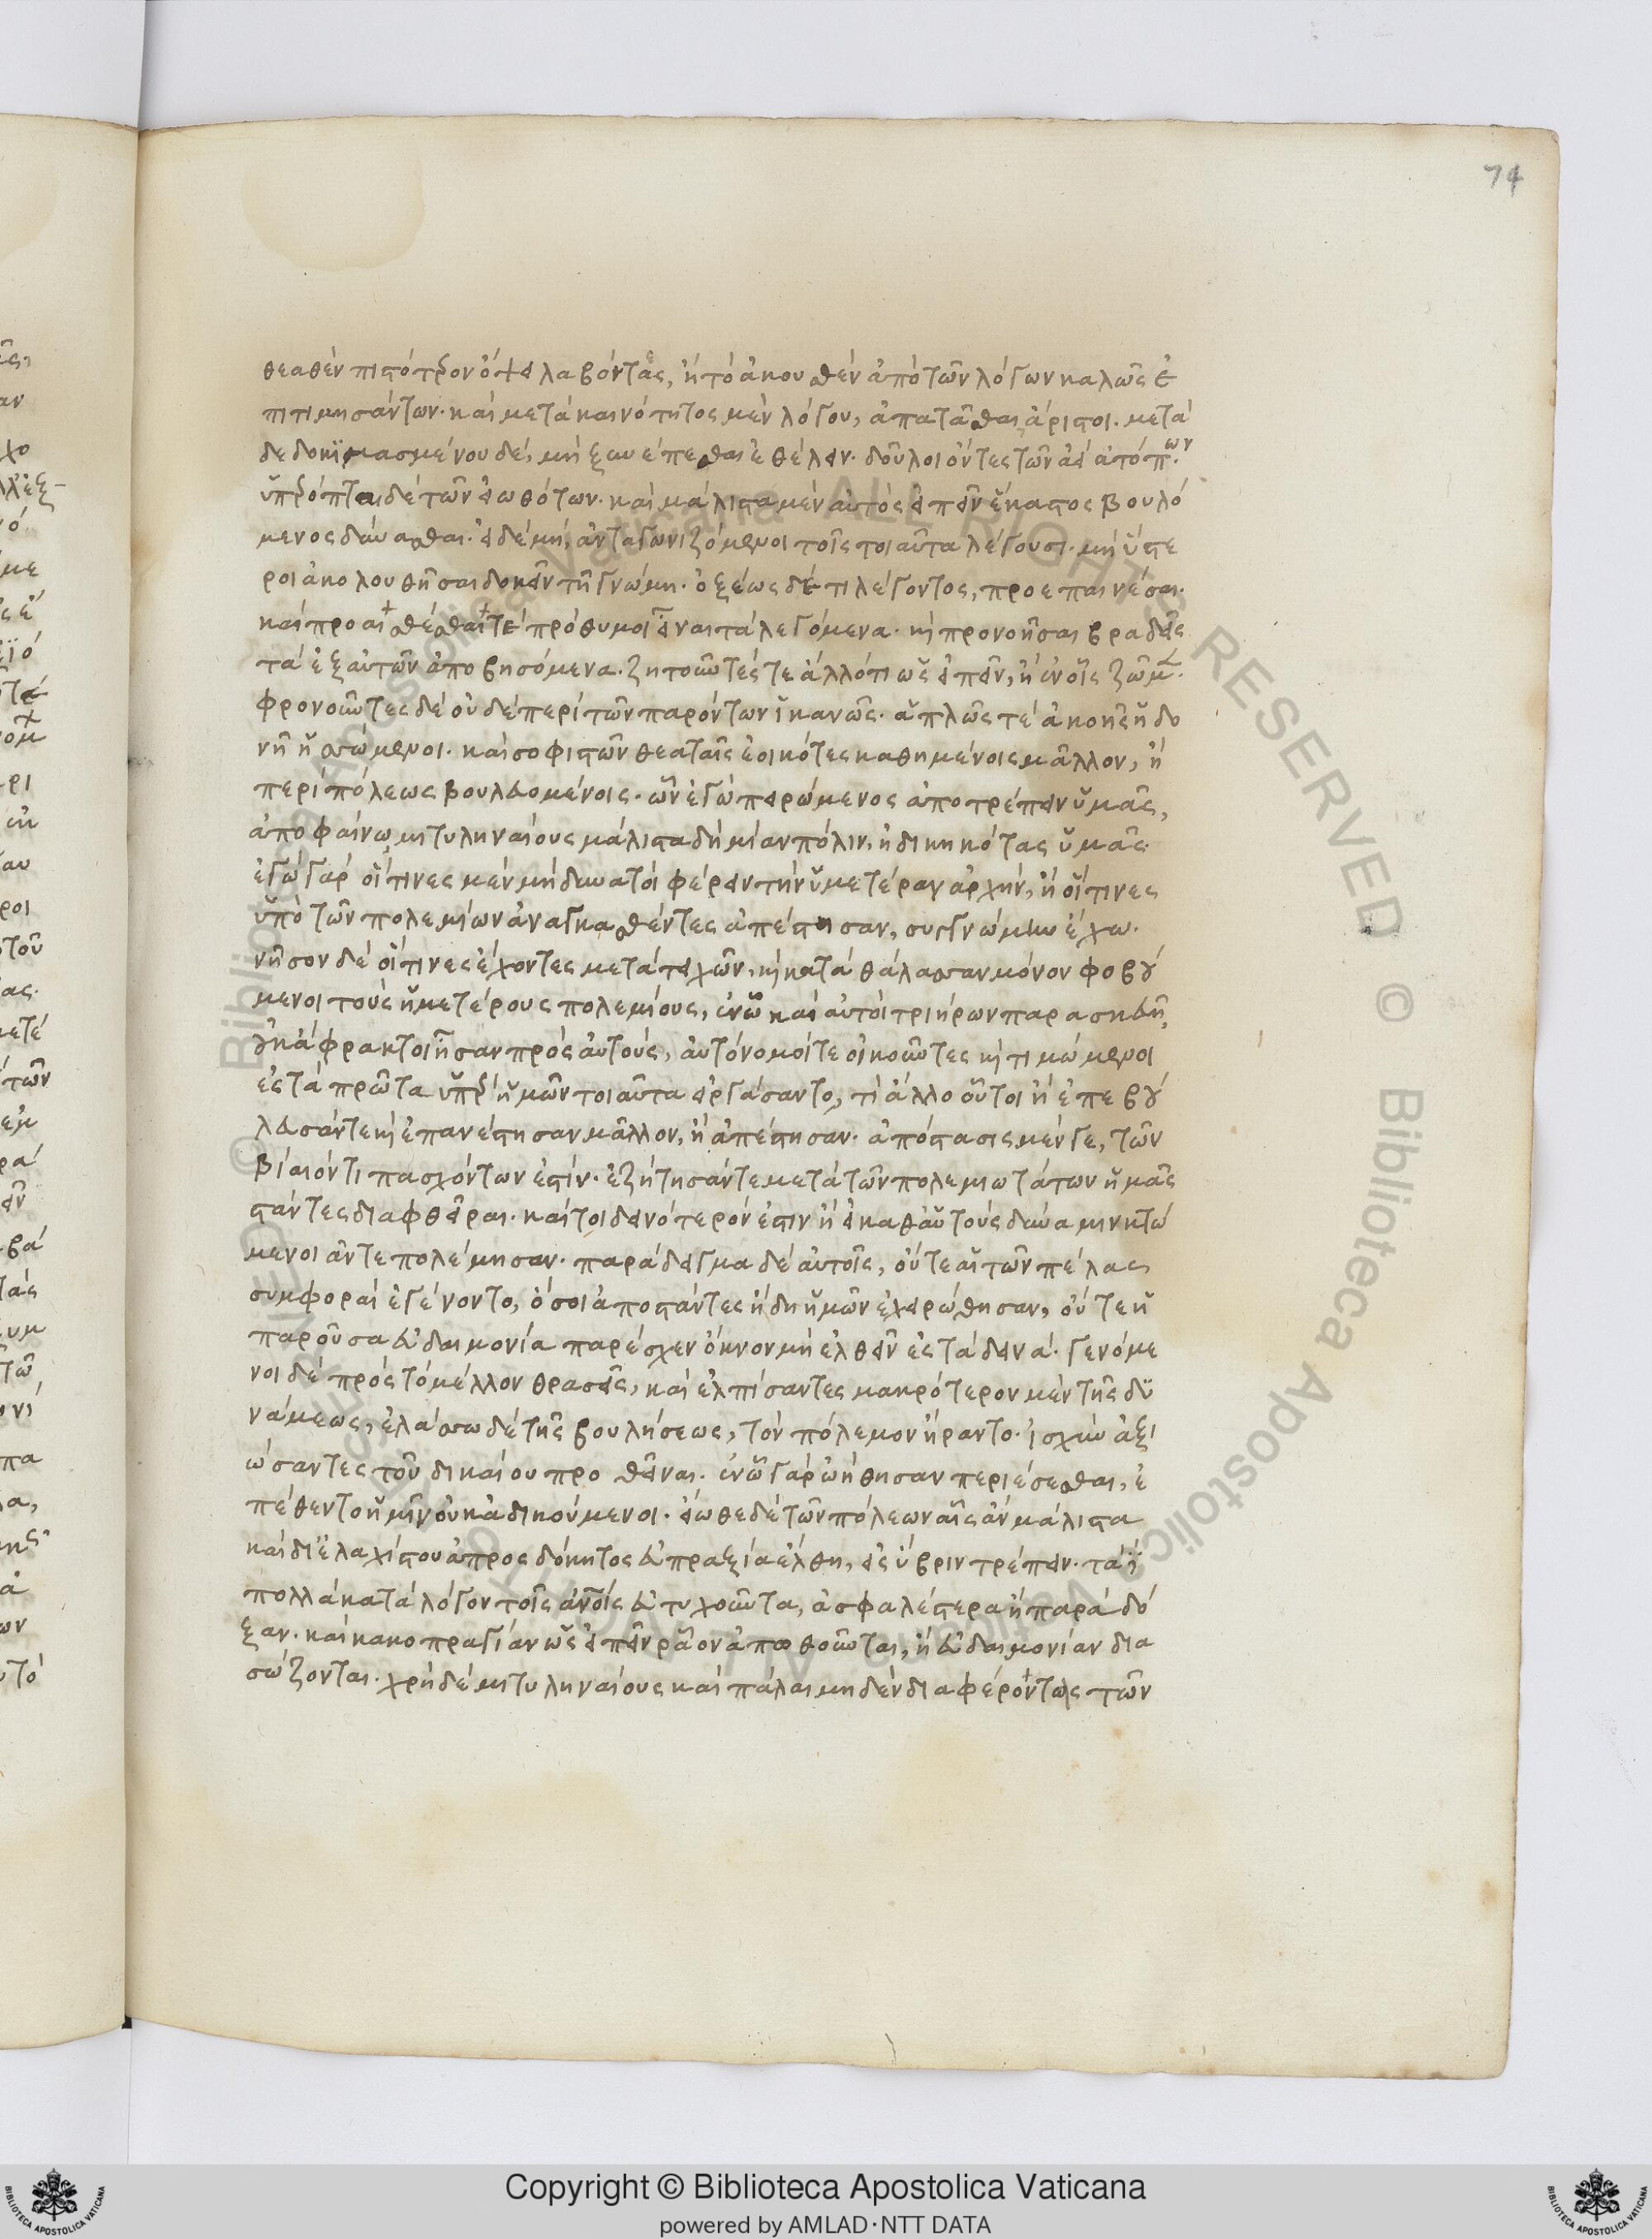 74
θεαθὲν πιστότερον ὄψει λαβόντες, ἢ τὸ ἀκουσθὲν ἀπὸ τῶν λόγων καλῶς ἐ
πιτιμησάντων· καὶ μετὰ καινότητος μὲν λόγου, ἀπατᾶσθαι ἄριστοι. μετὰ
δεδοκιμασμένου δὲ, μὴ ξυνέπεσθαι ἐθέλειν· δοῦλοι ὄντες τῶν ἀεὶ ἀτόπων
ὑπερόπται δὲ τῶν εἰωθότων· καὶ μάλιστα μὲν αὐτὸς εἰπεῖν ἕκαστος βουλό
μενος δύνασθαι· εἰ δὲ μὴ, ἀνταγωνιζόμενοι τοῖς τοιαῦτα λέγουσι· μὴ ὕστε
ροι ἀκολουθῆσαι δοκεῖν τῇ γνώμῃ· ὀξέως δέ τι λέγοντος, προεπαινέσαι·
καὶ προαισθέσθαι τε πρόθυμοι εἶναι τὰ λεγόμενα· κὶ προνοῆσαι βραδεῖς
τὰ ἐξ αὐτῶν ἀποβησόμενα. ζητοῦντές τε ἄλλό τι ὡς εἰπεῖν, ἢ ἐν οἷς ζῶμεν·
φρονοῦντες δὲ οὐδὲ περὶ τῶν παρόντων ἱκανῶς· ἁπλῶς τὲ ἀκοῆς ἡδο
νῇ ἡσσώμενοι· καὶ σοφιστῶν θεαταῖς ἐοικότες καθημένοις μᾶλλον, ἢ
περὶ πόλεως βουλευομένοις· ὧν ἐγὼ πειρώμενος ἀποτρέπειν ὑμᾶς,
ἀποφαίνω μιτυληναίους μάλιστα δὴ μίαν πόλιν, ἠδικηκότας ὑμᾶς·
ἐγὼ γὰρ οἵτινες μὲν μὴ δυνατοὶ φέρειν τὴν ὑμετέραν ἀρχὴν, ἢ οἵτινες
ὑπὸ τῶν πολεμίων ἀναγκασθέντες ἀπέστησαν, συγγνώμην ἔχω·
νῆσον δὲ οἵτινες ἔχοντες μετὰ τειχῶν, κὶ κατὰ θάλασσαν μόνον φοβού
μενοι τοὺς ἡμετέρους πολεμίους, ἐν ᾧ καὶ αὐτοὶ τριήρων παρασκευῇ
οὐκ ἄφρακτοι ἦσαν πρὸς αὐτούς, αὐτόνομοί τε οἰκοῦντες κὶ τιμώμενοι
ἐς τὰ πρῶτα ὑπὲρ ἡμῶν τοιαῦτα εἰργάσαντο, τί ἄλλο οὗτοι ἢ ἐπεβού
λευσάν τε κὶ ἐπανέστησαν μᾶλλον, ἢ ἀπέστησαν· ἀπόστασις μέν γε, τῶν
βίαιόν τι πασχόντων ἐστίν· ἐζήτησάν τε μετὰ τῶν πολεμιωτάτων ἡμᾶς
στάντες διαφθεῖραι· καίτοι δεινότερον ἐστιν ἢ εἰ καθ' αὑτοὺς δύναμιν κτώ
μενοι ἀντεπολέμησαν· παράδειγμα δὲ αὐτοῖς, οὔτε αἱ τῶν πέλας
συμφοραὶ ἐγένοντο, ὅσοι ἀποστάντες ἤδη ἡμῶν ἐχειρώθησαν, οὔτε ἡ
παροῦσα εὐδαιμονία παρέσχεν ὄκνον μὴ ἐλθεῖν ἐς τὰ δεινά· γενόμε
νοι δὲ πρὸς τὸ μέλλον θρασεῖς, καὶ ἐλπίσαντες μακρότερον μὲν τῆς δυ
νάμεως, ἐλάσσω δὲ τῆς βουλήσεως, τὸν πόλεμον ἤραντο· ἰσχὺν ἀξι
ώσαντες τοῦ δικαίου προθεῖναι· ἐν ᾧ γὰρ ᾠήθησαν περιέσεσθαι, ἐ
πέθεντο ἡμῖν οὐκ ἀδικούμενοι· εἴωθε δὲ τῶν πόλεων αἷς ἂν μάλιστα
καὶ δι' ἐλαχίστου ἀπροσδόκητος εὐπραξία ἔλθῃ, εἰς ὕβριν τρέπειν· τὰ
πολλὰ κατὰ λόγον τοῖς ἀνοις εὐτυχοῦντα, ἀσφαλέστερα ἢ παρὰ δό
ξαν· καὶ κακοπραγίαν ὡς εἰπεῖν ῥᾷον ἀπωθοῦνται, ἢ εὐδαιμονίαν δια
σώζονται· χρὴ δὲ μιτυληναίους καὶ πάλαι μηδὲν διαφέροντως τῶν
Copyright © Biblioteca Apostolica Vaticana
powered by AMLAD·NTT DATA